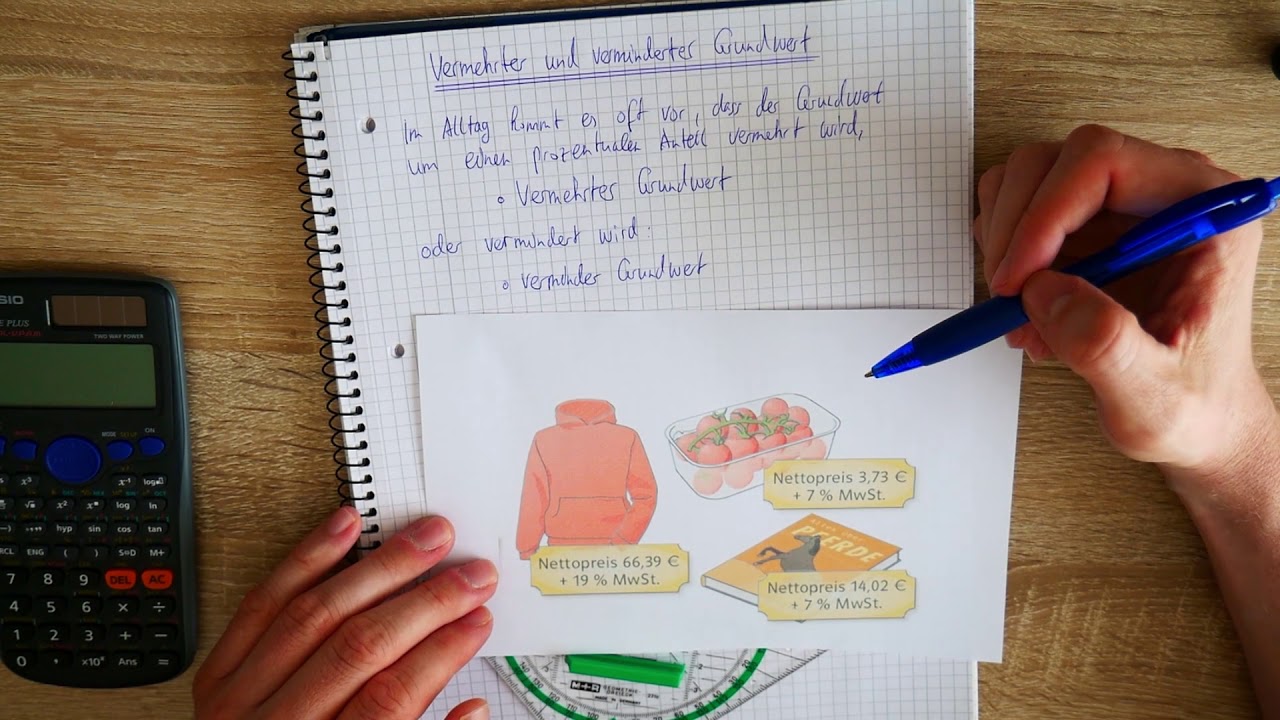 Vermehrter und verminderter Grundwert
Im Alltag kommt es oft vor, dass der Grundwert
um einen prozentualen Anteil vermehrt wird,
∘ Vermehrter Grundwert
oder vermindert wird:
∘ verminder Grundwert
Nettopreis 66,39 €
+ 19 % MwSt.
Nettopreis 3,73 €
+ 7 % MwSt.
PFERDE
Nettopreis 14,02 €
+ 7 % MwSt.
TWO WAY POWER
MODE
ON
x⁻¹
x²
log
ln
hyp
sin
cos
tan
RCL
ENG
(
)
S⇔D
M+
7
8
9
DEL
AC
4
5
6
×
÷
1
2
3
+
−
0
·
×10ˣ
Ans
=
M+R
GEOMETRIE-
DREIECK